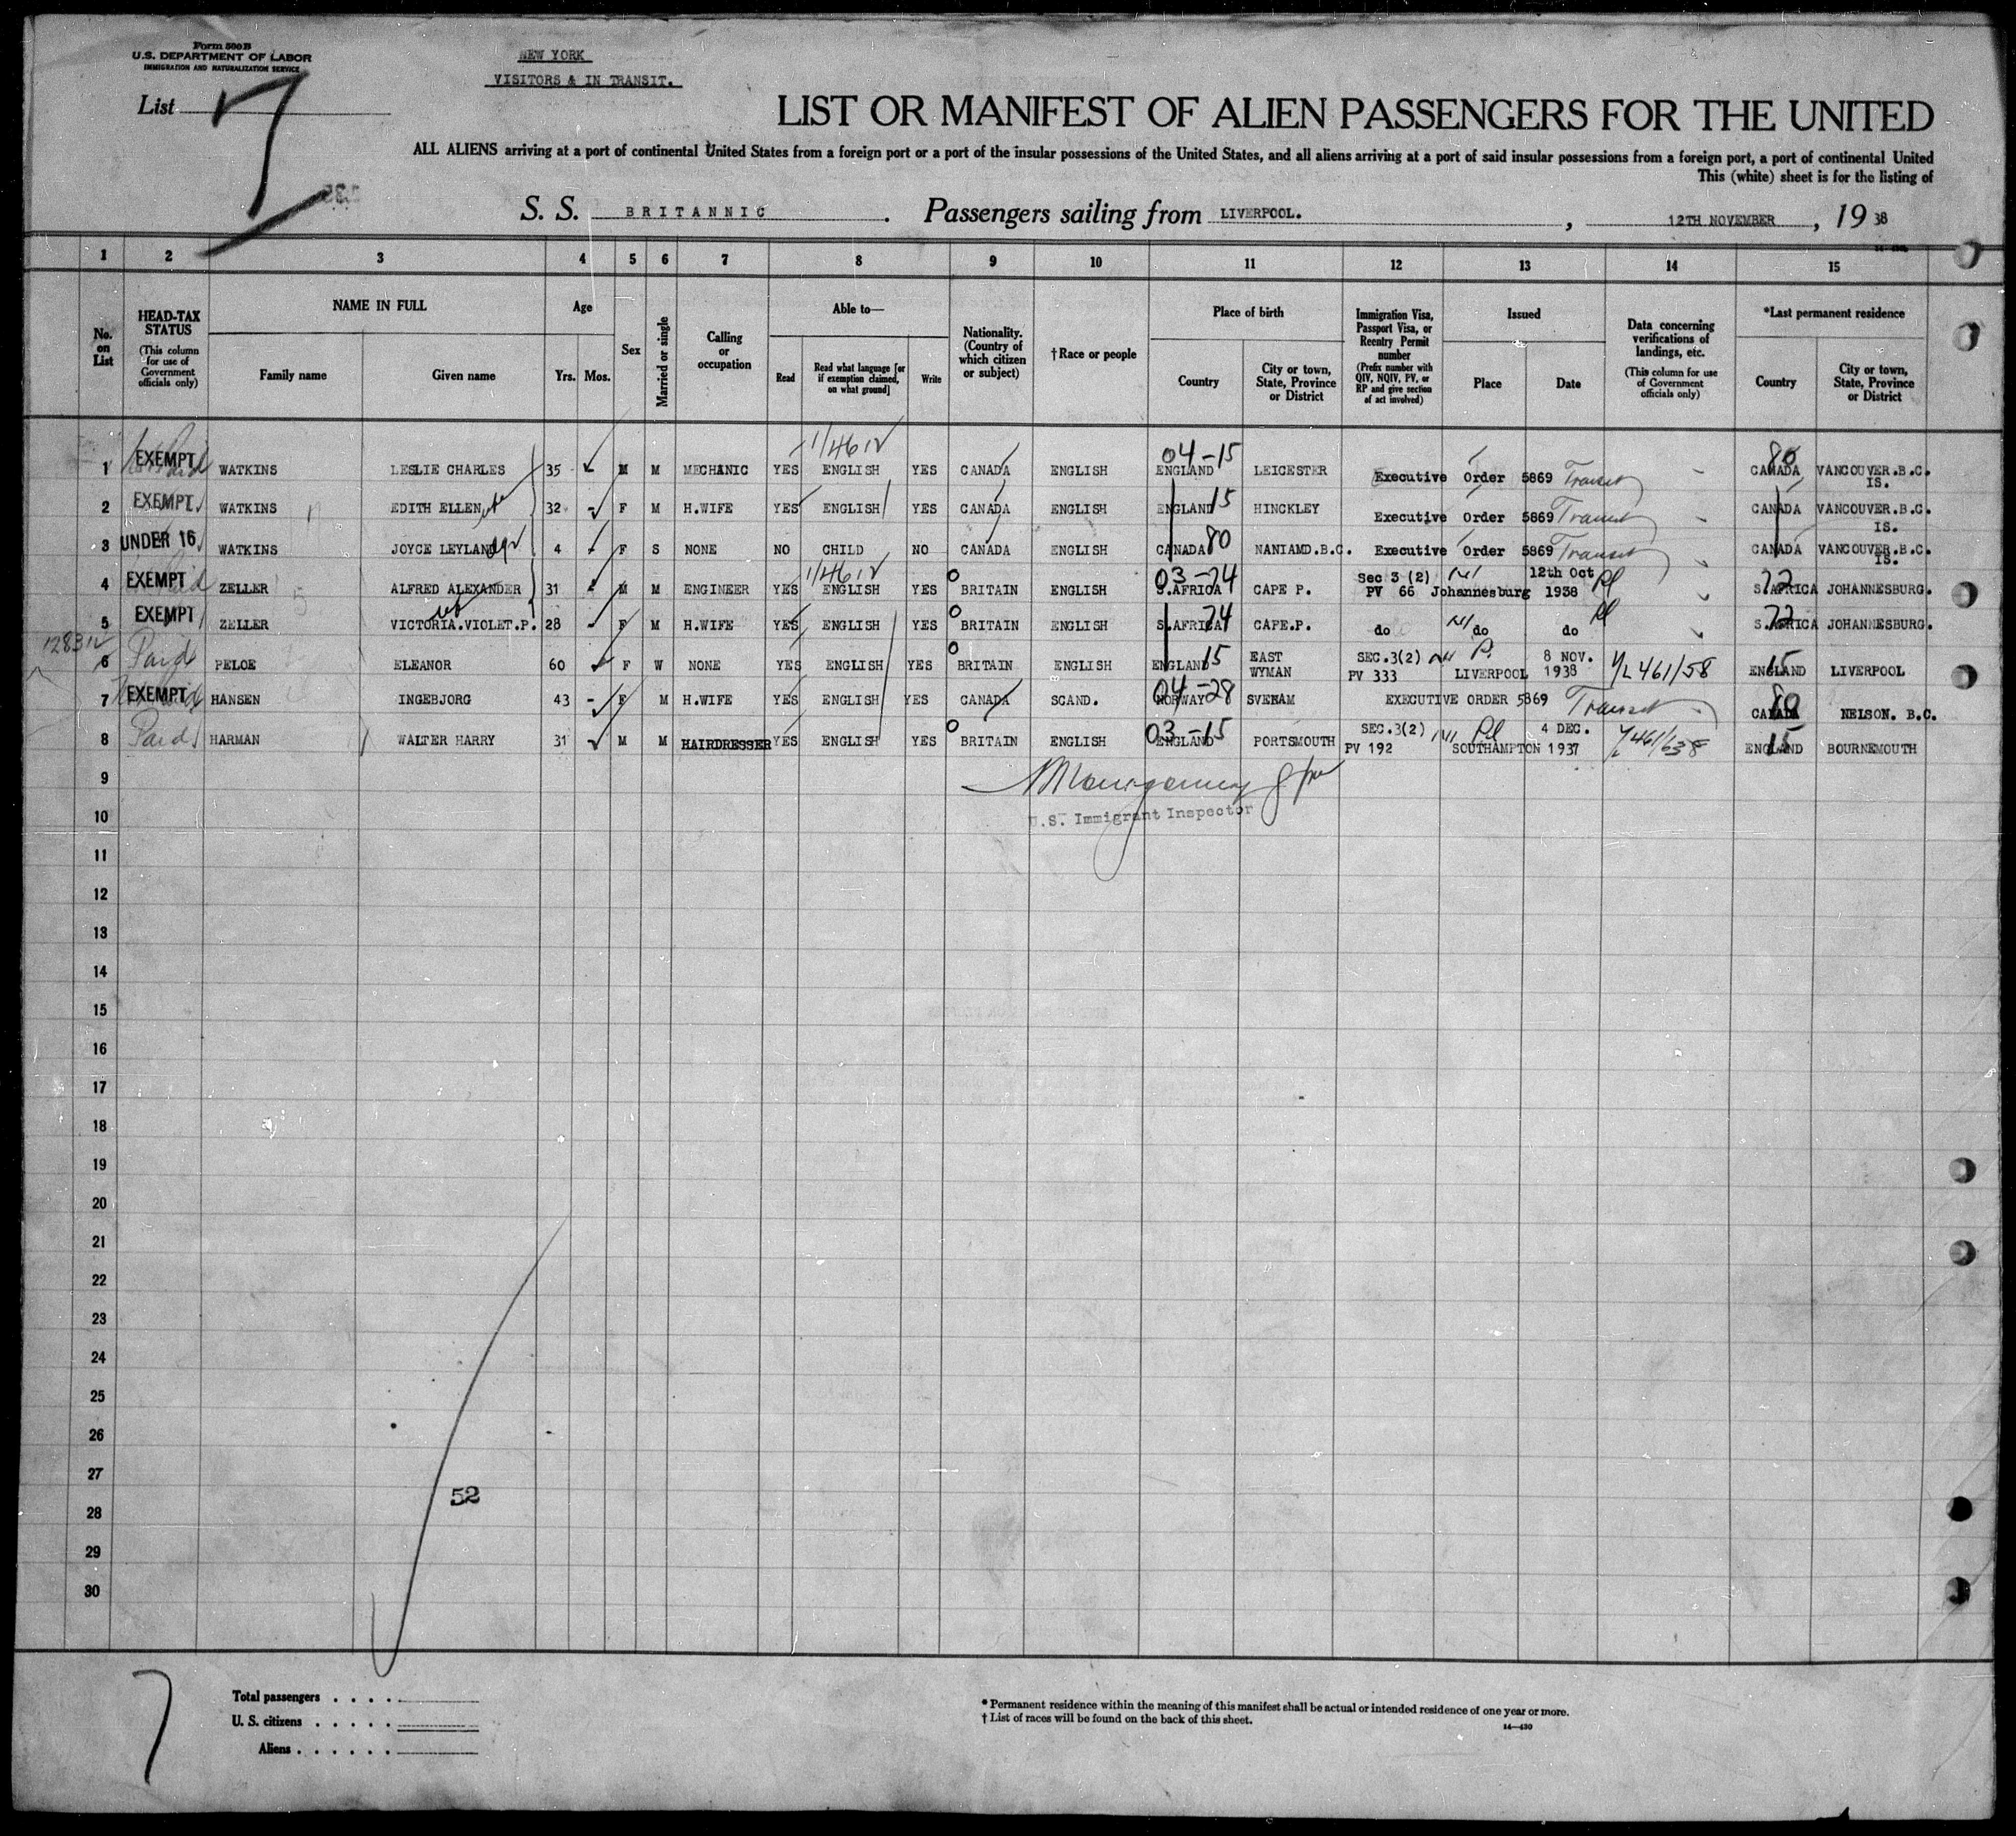 Form 500 B
U.S. DEPARTMENT OF LABOR
IMMIGRATION AND NATURALIZATION SERVICE
NEW YORK
VISITORS & IN TRANSIT.
List 7
LIST OR MANIFEST OF ALIEN PASSENGERS FOR THE UNITED
ALL ALIENS arriving at a port of continental United States from a foreign port or a port of the insular possessions of the United States, and all aliens arriving at a port of said insular possessions from a foreign port, a port of continental United
This (white) sheet is for the listing of
S. S. BRITANNIC . Passengers sailing from LIVERPOOL. , 12TH NOVEMBER , 19 38
1 2 3 4 5 6 7 8 9 10 11 12 13 14 15
No. on List
HEAD-TAX STATUS (This column for use of Government officials only)
NAME IN FULL
Family name Given name
Age
Yrs. Mos.
Sex
Married or single
Calling or occupation
Able to—
Read Read what language [or if exemption claimed, on what ground] Write
Nationality. (Country of which citizen or subject)
†Race or people
Place of birth
Country City or town, State, Province or District
Immigration Visa, Passport Visa, or Reentry Permit number (Prefix number with QIV, NQIV, PV, or RP and give section of act involved)
Issued
Place Date
Data concerning verifications of landings, etc. (This column for use of Government officials only)
*Last permanent residence
Country City or town, State, Province or District
04-15 80
1 EXEMPT WATKINS LESLIE CHARLES 35 M M MECHANIC YES ENGLISH YES CANADA ENGLISH ENGLAND LEICESTER Executive Order 5869 Transit CANADA VANCOUVER.B.C. IS.
2 EXEMPT WATKINS EDITH ELLEN 32 F M H.WIFE YES ENGLISH YES CANADA ENGLISH ENGLAND 15 HINCKLEY Executive Order 5869 Transit CANADA VANCOUVER.B.C. IS.
3 UNDER 16 WATKINS JOYCE LEYLAND 4 F S NONE NO CHILD NO CANADA ENGLISH CANADA 80 NANIAMD.B.C. Executive Order 5869 Transit CANADA VANCOUVER.B.C. IS.
4 EXEMPT ZELLER ALFRED ALEXANDER 31 M M ENGINEER YES ENGLISH YES BRITAIN ENGLISH 03-74 S.AFRICA CAPE P. Sec 3 (2) PV 66 Johannesburg 12th Oct 1938 72 S.AFRICA JOHANNESBURG.
5 EXEMPT ZELLER VICTORIA.VIOLET.P. 28 F M H.WIFE YES ENGLISH YES BRITAIN ENGLISH S.AFRICA 74 CAPE.P. do do do 72 S.AFRICA JOHANNESBURG.
6 Paid PELOE ELEANOR 60 F W NONE YES ENGLISH YES BRITAIN ENGLISH ENGLAND 15 EAST WYMAN SEC.3(2) PV 333 LIVERPOOL 8 NOV. 1938 461/58 15 ENGLAND LIVERPOOL
7 EXEMPT HANSEN INGEBJORG 43 F M H.WIFE YES ENGLISH YES CANADA SCAND. 04-28 NORWAY SVEHAM EXECUTIVE ORDER 5869 Transit 80 CANADA NELSON. B.C.
8 Paid HARMAN WALTER HARRY 31 M M HAIRDRESSER YES ENGLISH YES BRITAIN ENGLISH 03-15 ENGLAND PORTSMOUTH SEC.3(2) PV 192 SOUTHAMPTON 4 DEC. 1937 461/638 15 ENGLAND BOURNEMOUTH
9
10
U.S. Immigrant Inspector
11
12
13
14
15
16
17
18
19
20
21
22
23
24
25
26
27
52
28
29
30
7
Total passengers . . . .
U. S. citizens . . . . .
Aliens . . . . . .
* Permanent residence within the meaning of this manifest shall be actual or intended residence of one year or more.
† List of races will be found on the back of this sheet.
14—430